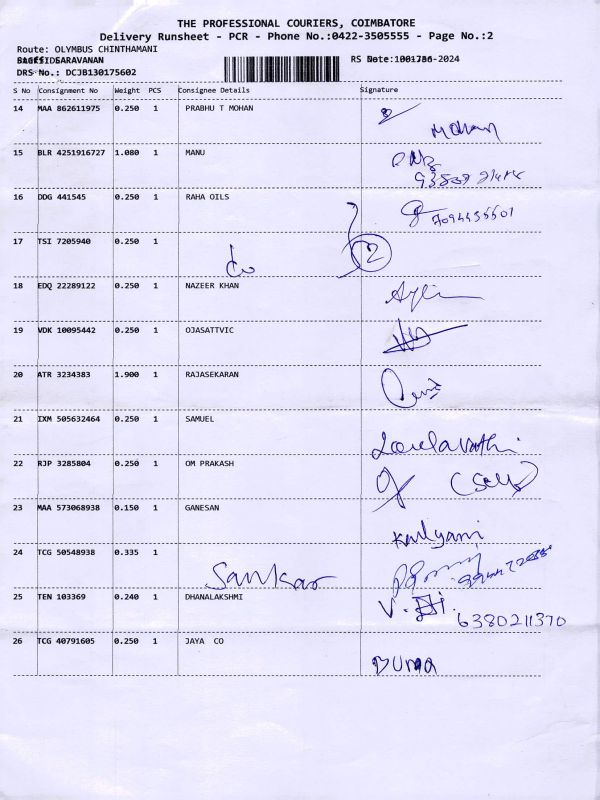 THE PROFESSIONAL COURIERS, COIMBATORE
Delivery Runsheet - PCR - Phone No.:0422-3505555 - Page No.:2
Route: OLYMBUS CHINTHAMANI
SARAVANAN RS Date: -2024
DRS No.: DCJB130175602
S No Consignment No Weight PCS Consignee Details Signature
14 MAA 862611975 0.250 1 PRABHU T MOHAN
Mohan
15 BLR 4251916727 1.080 1 MANU
16 DDG 441545 0.250 1 RAHA OILS
17 TSI 7205940 0.250 1 2
18 EDQ 22289122 0.250 1 NAZEER KHAN
19 VDK 10095442 0.250 1 OJASATTVIC
20 ATR 3234383 1.900 1 RAJASEKARAN
21 IXM 505632464 0.250 1 SAMUEL
22 RJP 3285804 0.250 1 OM PRAKASH
23 MAA 573068938 0.150 1 GANESAN
Kalyani
24 TCG 50548938 0.335 1 Sankar
25 TEN 103369 0.240 1 DHANALAKSHMI
6380211370
26 TCG 40791605 0.250 1 JAYA CO
Buma